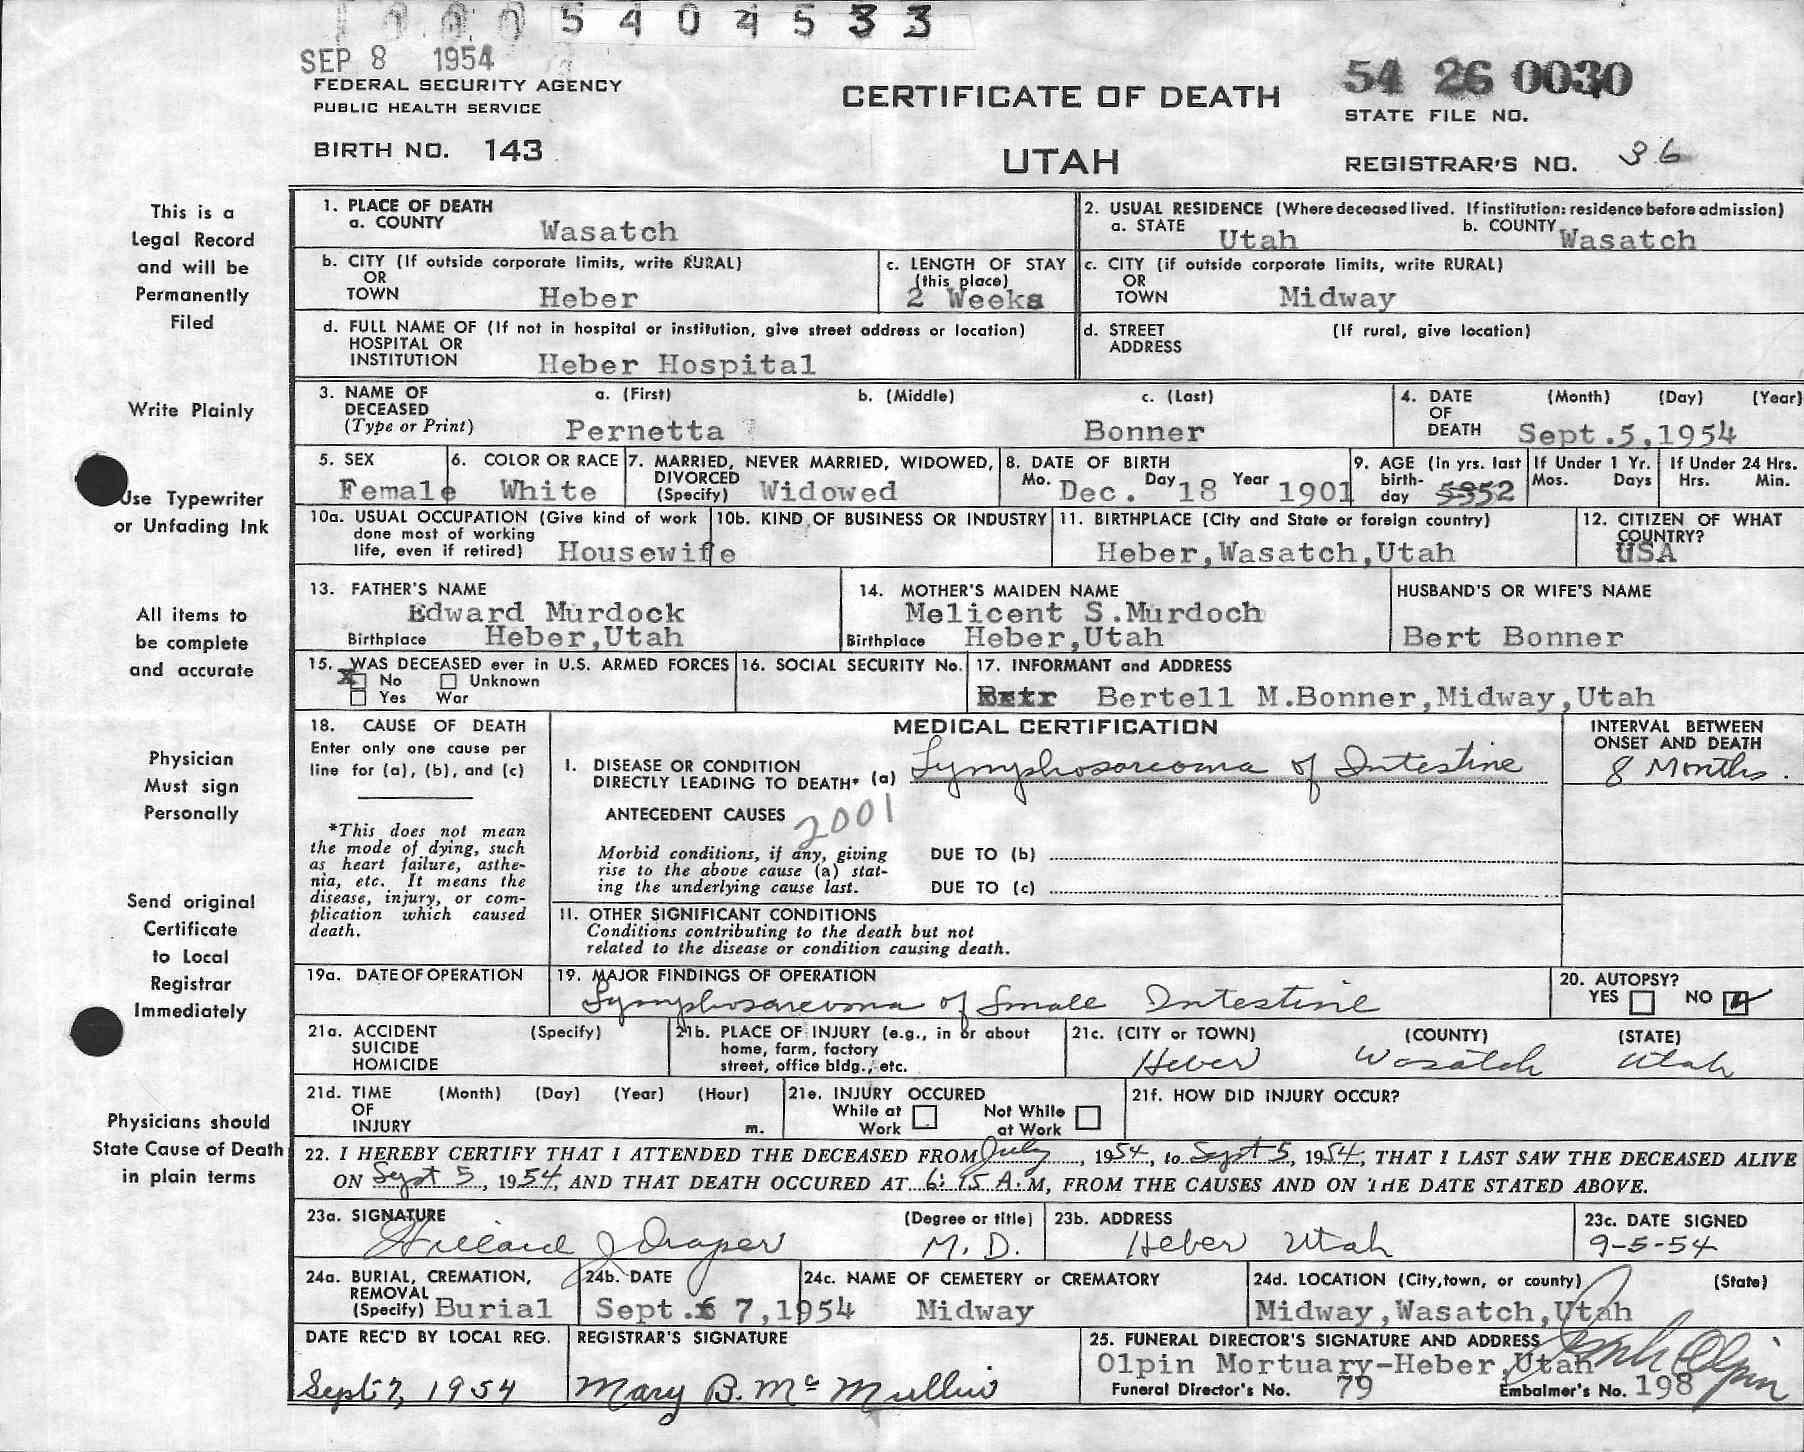 5404533
SEP 8 1954
FEDERAL SECURITY AGENCY
PUBLIC HEALTH SERVICE
BIRTH NO. 143
CERTIFICATE OF DEATH
UTAH
54 26 0030
STATE FILE NO.
REGISTRAR'S NO. 36
This is a
Legal Record
and will be
Permanently
Filed
Write Plainly
Use Typewriter
or Unfading Ink
All items to
be complete
and accurate
Physician
Must sign
Personally
Send original
Certificate
to Local
Registrar
Immediately
Physicians should
State Cause of Death
in plain terms
1. PLACE OF DEATH
a. COUNTY Wasatch
2. USUAL RESIDENCE (Where deceased lived. If institution: residence before admission)
a. STATE Utah b. COUNTY Wasatch
b. CITY (If outside corporate limits, write RURAL)
OR
TOWN Heber
c. LENGTH OF STAY
(this place)
2 Weeks
c. CITY (if outside corporate limits, write RURAL)
OR
TOWN Midway
d. FULL NAME OF (If not in hospital or institution, give street address or location)
HOSPITAL OR
INSTITUTION Heber Hospital
d. STREET (If rural, give location)
ADDRESS
3. NAME OF a. (First) b. (Middle) c. (Last)
DECEASED
(Type or Print) Pernetta Bonner
4. DATE (Month) (Day) (Year)
OF
DEATH Sept.5,1954
5. SEX
Female
6. COLOR OR RACE
White
7. MARRIED, NEVER MARRIED, WIDOWED,
DIVORCED
(Specify) Widowed
8. DATE OF BIRTH
Mo. Dec. Day 18 Year 1901
9. AGE (In yrs. last
birth-
day 52
If Under 1 Yr.
Mos. Days
If Under 24 Hrs.
Hrs. Min.
10a. USUAL OCCUPATION (Give kind of work
done most of working
life, even if retired) Housewife
10b. KIND OF BUSINESS OR INDUSTRY
11. BIRTHPLACE (City and State or foreign country)
Heber,Wasatch,Utah
12. CITIZEN OF WHAT
COUNTRY?
USA
13. FATHER'S NAME
Edward Murdock
Birthplace Heber,Utah
14. MOTHER'S MAIDEN NAME
Melicent S.Murdoch
Birthplace Heber,Utah
HUSBAND'S OR WIFE'S NAME
Bert Bonner
15. WAS DECEASED ever in U.S. ARMED FORCES
x No Unknown
Yes War
16. SOCIAL SECURITY No.
17. INFORMANT and ADDRESS
Bertell M.Bonner,Midway,Utah
18. CAUSE OF DEATH
Enter only one cause per
line for (a), (b), and (c)
*This does not mean
the mode of dying, such
as heart failure, asthe-
nia, etc. It means the
disease, injury, or com-
plication which caused
death.
MEDICAL CERTIFICATION
I. DISEASE OR CONDITION
DIRECTLY LEADING TO DEATH* (a) Lymphosarcoma of Intestine
ANTECEDENT CAUSES
2001
Morbid conditions, if any, giving
rise to the above cause (a) stat-
ing the underlying cause last.
DUE TO (b)
DUE TO (c)
II. OTHER SIGNIFICANT CONDITIONS
Conditions contributing to the death but not
related to the disease or condition causing death.
INTERVAL BETWEEN
ONSET AND DEATH
8 Months.
19a. DATE OF OPERATION
19. MAJOR FINDINGS OF OPERATION
Lymphosarcoma of Small Intestine
20. AUTOPSY?
YES NO
21a. ACCIDENT (Specify)
SUICIDE
HOMICIDE
21b. PLACE OF INJURY (e.g., in or about
home, farm, factory
street, office bldg., etc.
21c. (CITY or TOWN) (COUNTY) (STATE)
Heber Wasatch Utah
21d. TIME (Month) (Day) (Year) (Hour)
OF
INJURY m.
21e. INJURY OCCURED
While at Not While
Work at Work
21f. HOW DID INJURY OCCUR?
22. I HEREBY CERTIFY THAT I ATTENDED THE DECEASED FROM July, 1954, to Sept 5, 1954, THAT I LAST SAW THE DECEASED ALIVE
ON Sept 5, 1954, AND THAT DEATH OCCURED AT 6:15 A.M, FROM THE CAUSES AND ON THE DATE STATED ABOVE.
23a. SIGNATURE (Degree or title)
Draper M.D.
23b. ADDRESS
Heber Utah
23c. DATE SIGNED
9-5-54
24a. BURIAL, CREMATION,
REMOVAL
(Specify) Burial
24b. DATE
Sept. 7,1954
24c. NAME OF CEMETERY or CREMATORY
Midway
24d. LOCATION (City,town, or county) (State)
Midway,Wasatch,Utah
DATE REC'D BY LOCAL REG.
Sept 7, 1954
REGISTRAR'S SIGNATURE
Mary B. McMullin
25. FUNERAL DIRECTOR'S SIGNATURE AND ADDRESS
Olpin Mortuary-Heber,Utah Olpin
Funeral Director's No. 79 Embalmer's No. 198